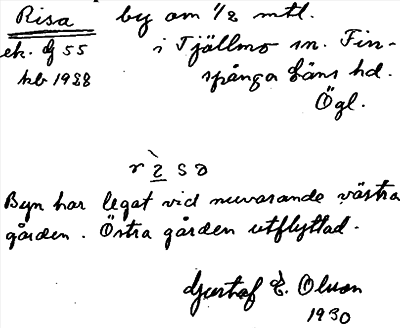 Risa by om 1/2 mtl.
ek. bf 55 i Tjällmo sn. Fin-
hb 1988 spånga läns hd.
Ögl.
Byn har legat vid nuvarande västra
gården. Östra gården utflyttad.
Gustaf E. Olson
1930